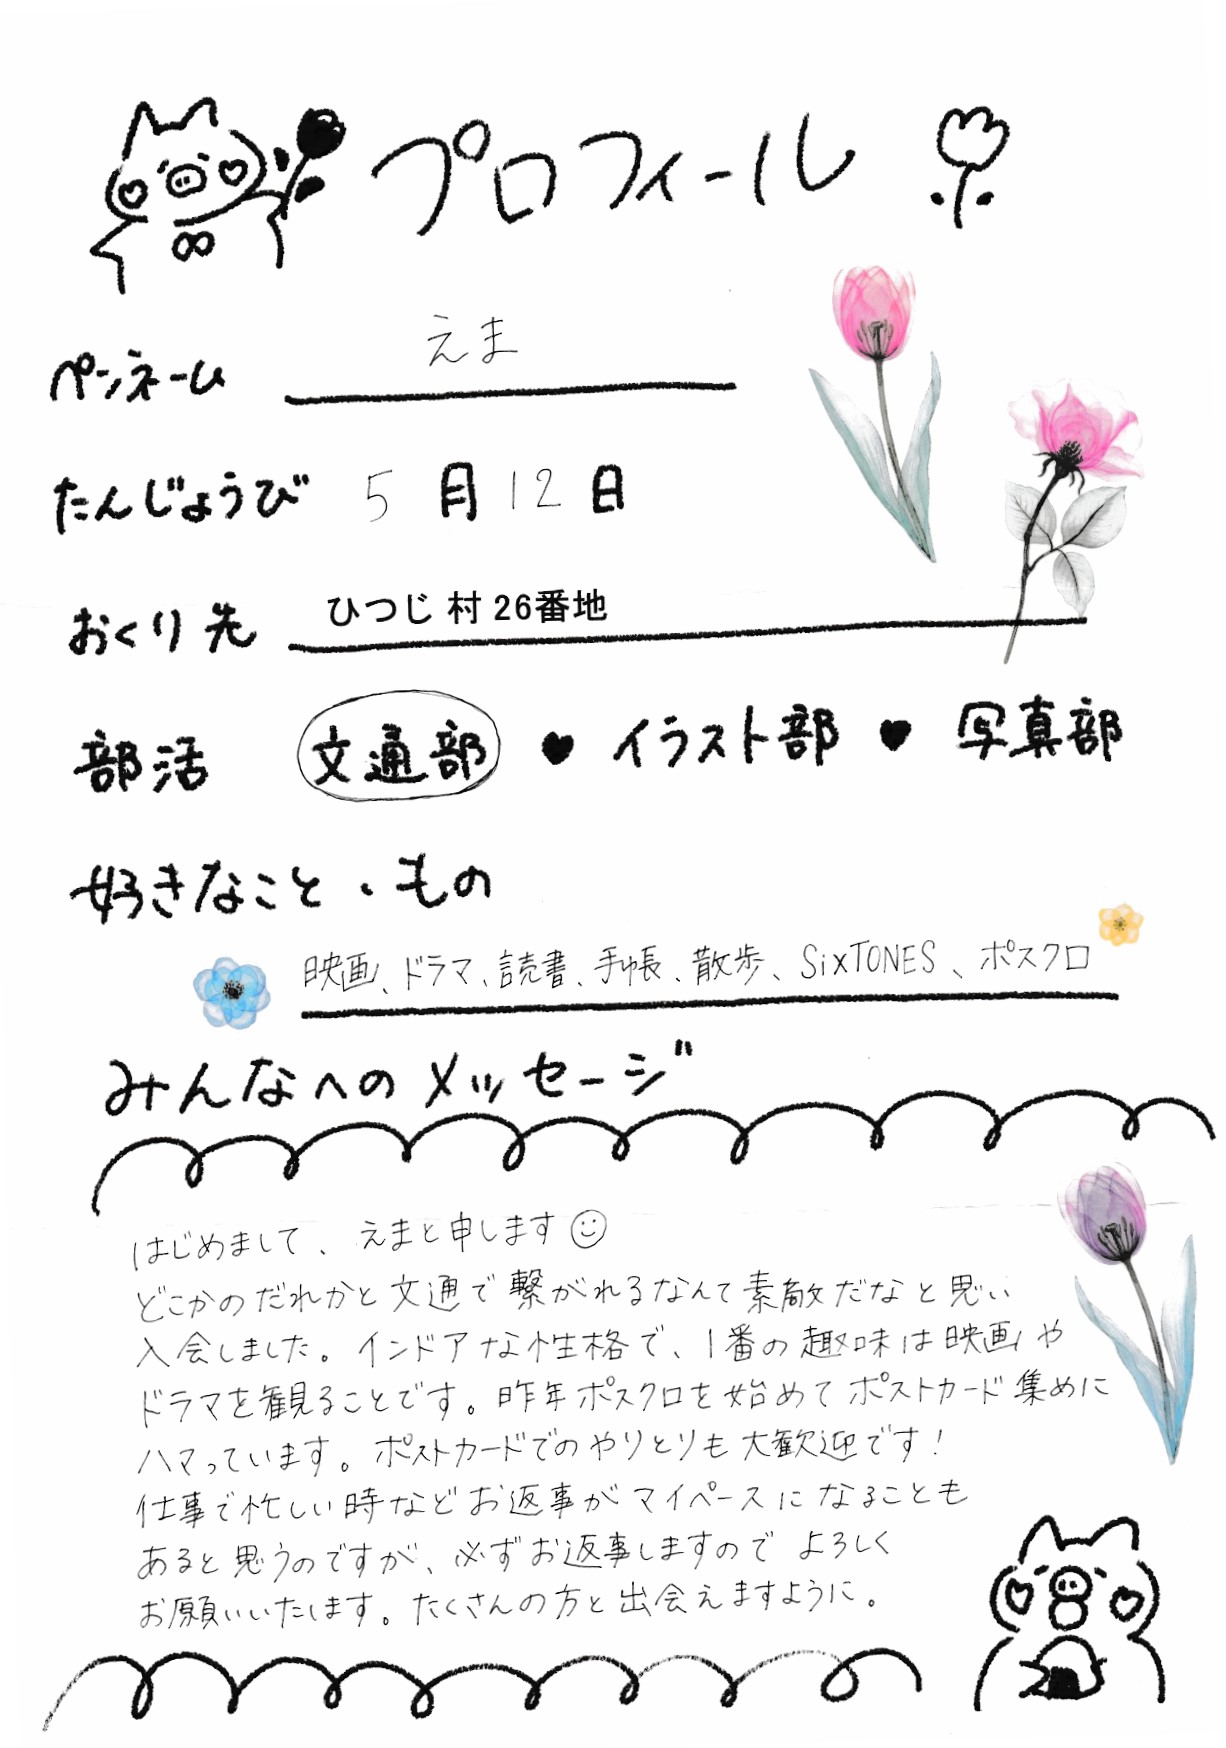 プロフィール
ペンネーム えま
たんじょうび 5月12日
おくり先 ひつじ村26番地
部活 文通部 ♥ イラスト部 ♥ 写真部
好きなこと・もの
映画、ドラマ、読書、手帳、散歩、SixTONES、ポスクロ
みんなへのメッセージ
はじめまして、えまと申します☺
どこかのだれかと文通で繋がれるなんて素敵だなと思い
入会しました。インドアな性格で、1番の趣味は映画や
ドラマを観ることです。昨年ポスクロを始めてポストカード集めに
ハマっています。ポストカードでのやりとりも大歓迎です!
仕事で忙しい時などお返事がマイペースになることも
あると思うのですが、必ずお返事しますのでよろしく
お願いいたします。たくさんの方と出会えますように。